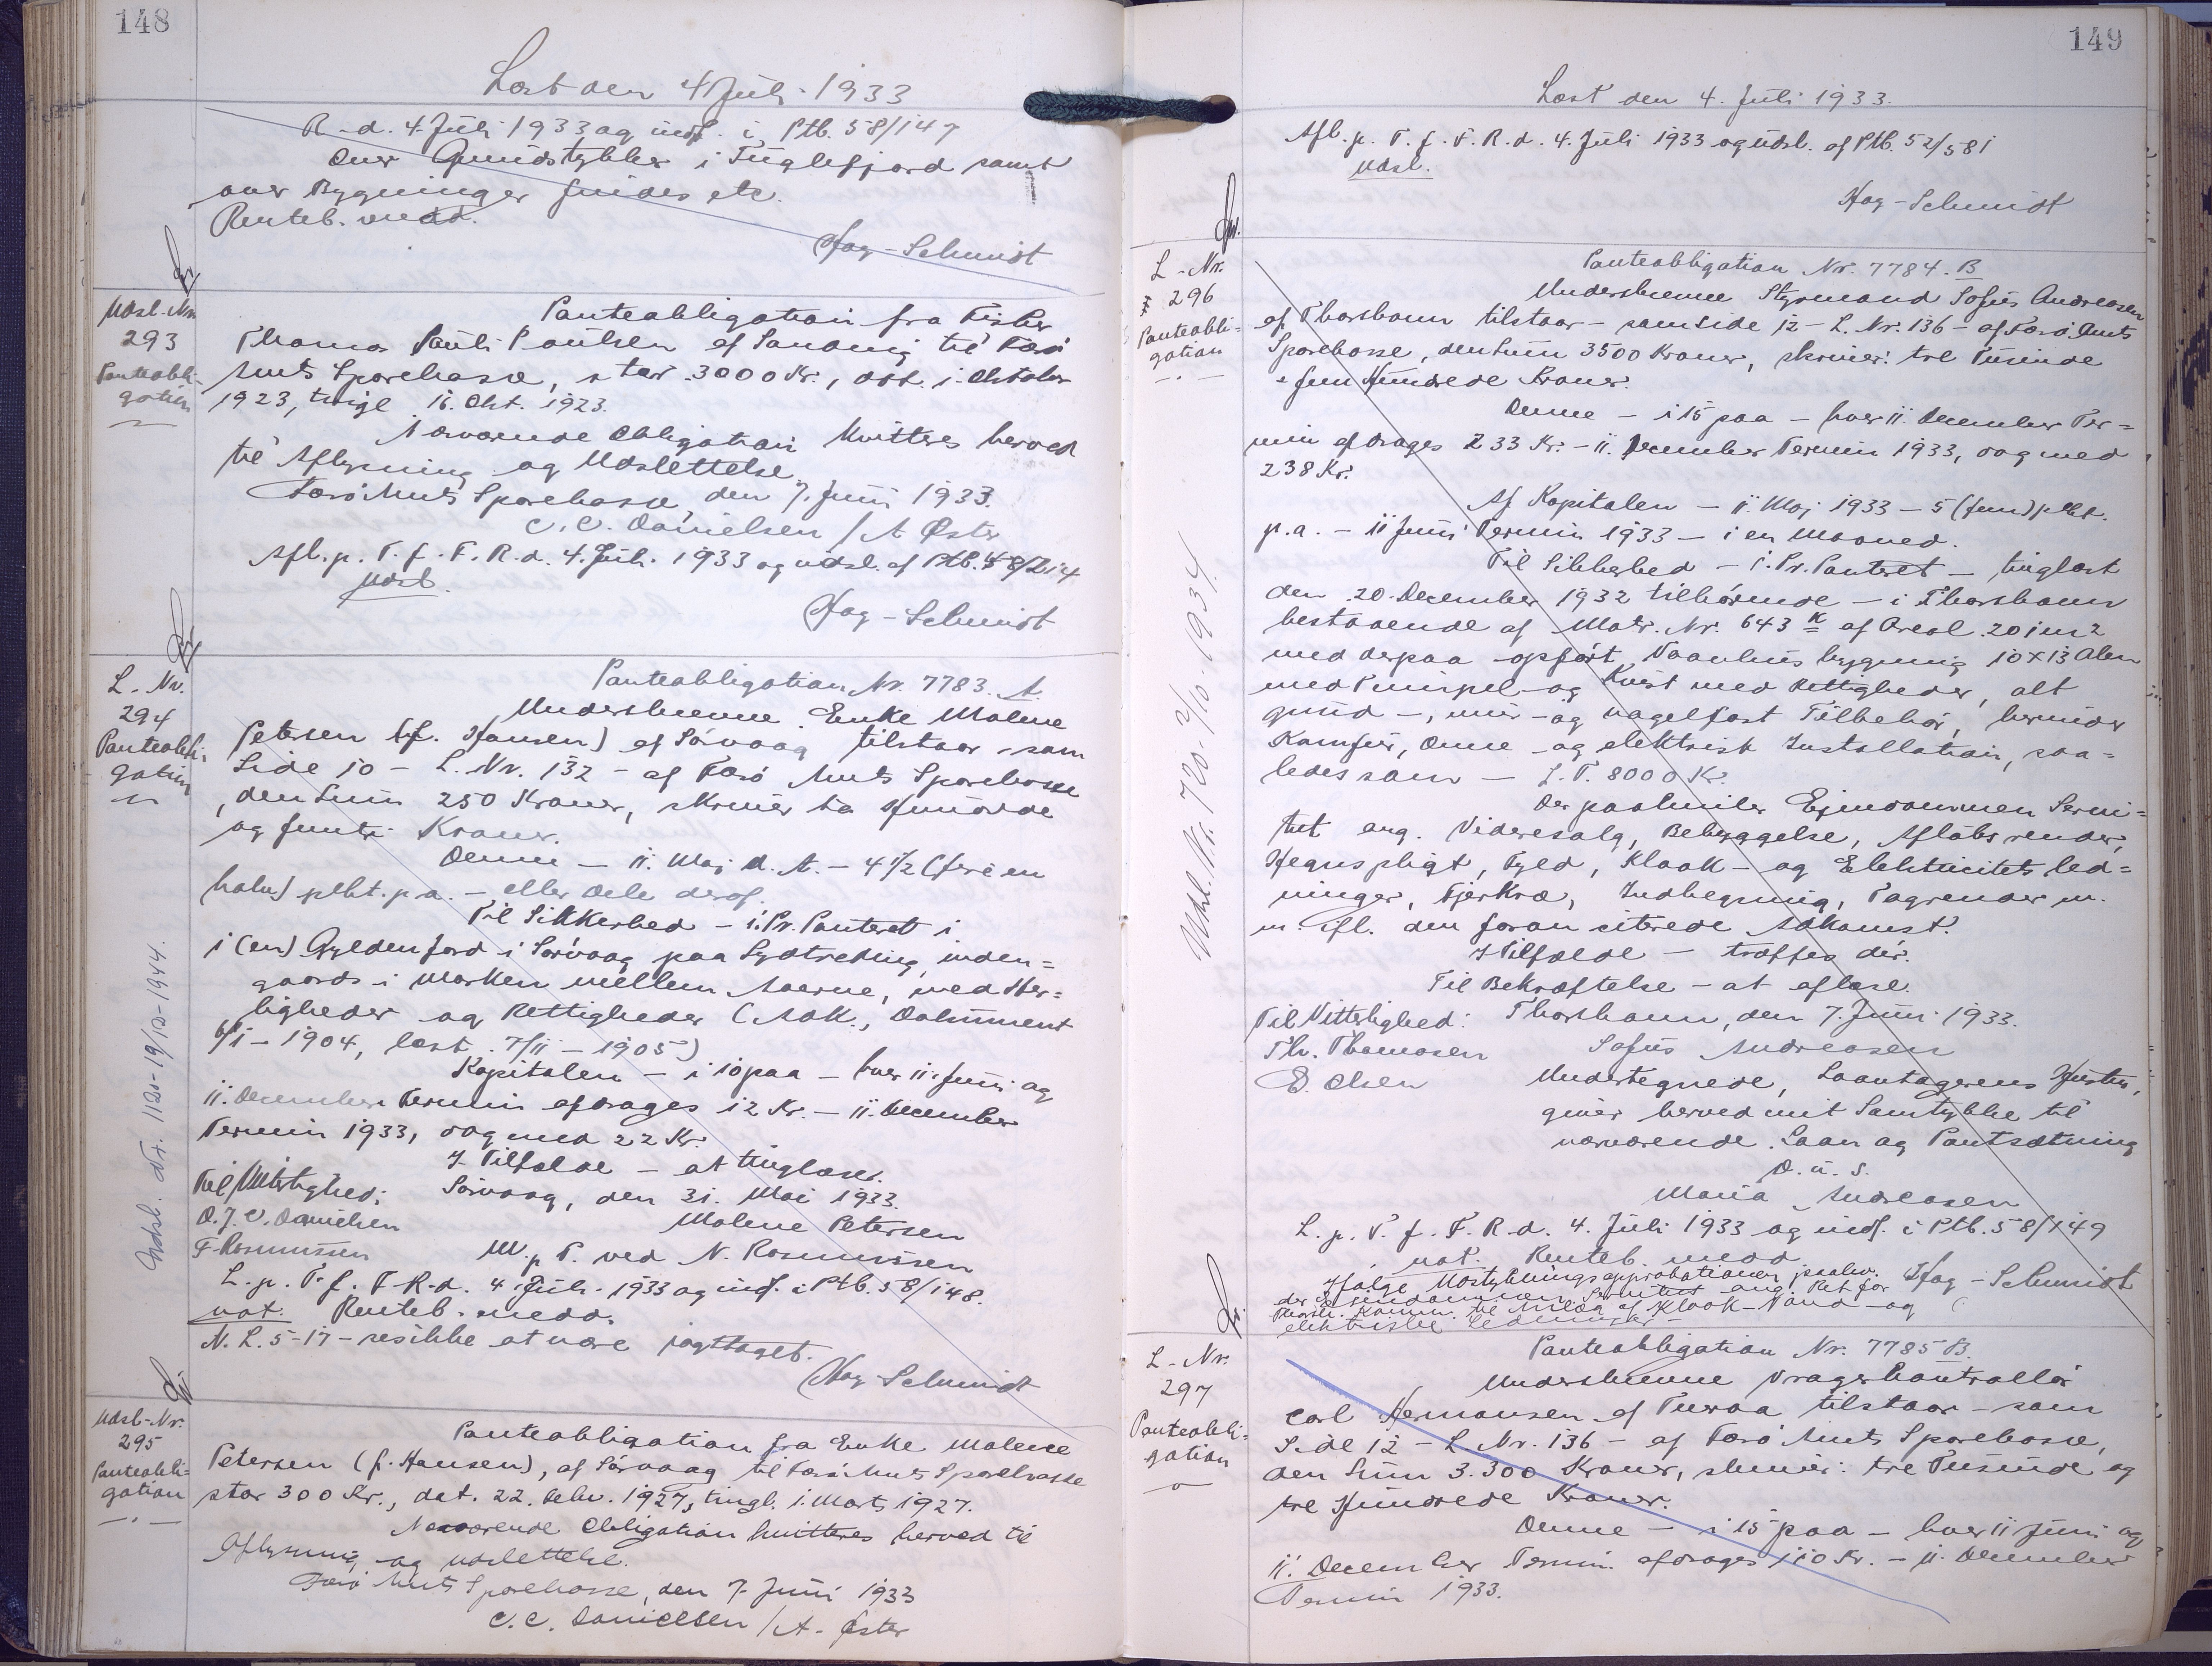 148
Læst den 4 Juli 1933
R. d. 4. Juli 1933 og indf. i Ptb. 58/147
Over Grundstykker i Fuglefjord samt
over Bygninger sindes etc.
Renteb. medd.
Hag-Schmidt
Udsl.-Nr.
293
Panteobli-
gation
Panteobligation fra Fisker
Thomas Pauli Poulsen af Sandvig til Færø
Amts Sparekasse, stor 3000 Kr., dat. 1. Oktober
1923, tingl. 16. Okt. 1923.
Nærværende Obligation kvitteres herved
til Aflysning og Udslettelse
Færø Amts Sparekasse, den 7. Juni 1933.
C. C. Danielsen / A Øster
Afl. p. T. f. F. R. d. 4. Juli 1933 og udsl. af Ptb. 48/214
Udsl.
Hag-Schmidt
L.-Nr.
294
Panteobli-
gation
Panteobligation Nr. 7783. A.
Underskrevne Enke Malene
Petersen (f. Hansen) af Sørvaag tilstaar - som
Side 10 - L. Nr. 132 - af Færø Amts Sparekasse
, den Sum 250 Kroner, skriver to Hundrede
og femti Kroner.
Denne - 11. Maj d. A. - 4 1/2 (fire en
halv) pCt. p. a. - eller dele deraf.
Til Sikkerhed - 1. Pr. Panteret i
1 (en) Gylden Jord i Sørvaag paa Sydtrekning, inden-
gaards i Marken mellem Aaerne, med Her-
ligheder og Rettigheder (Adk., Dokument
6/1 - 1904, læst 7/11 - 1905)
Kapitalen - i 10 paa - hver 11. Juni og
11. December Termin afdrages 12 Kr. - 11. December
Termin 1933, dog med 22 Kr.
I Tilfælde - at tinglæse.
Til Vitterlighed: Sørvaag, den 31. Mai 1933.
D. J. C. Danielsen Malene Petersen
F. Rasmussen M. p. P. ved N. Rasmussen
L. p. T. f. F. R. d. 4 Juli 1933 og indf. i Ptb. 58/148.
not. Renteb. medd.
N. L. 5-17- ses ikke at være iagttaget.
Hag-Schmidt
Udsl. d. Nr. 1120 - 19/12-1944.
Udsl.-Nr.
295
Panteobli-
gation
Panteobligation fra Enke Malene
Petersen (f. Hansen), af Sørvaag til Færø Amts Sparekasse
stor 300 Kr., dat. 22. Febr. 1927, tingl. 1. Marts 1927.
Nærværende Obligation kvitteres herved til
Aflysning og udslettelse.
Færø Amts Sparekasse, den 7. Juni 1933
C. C. Danielsen / A. Øster
149
Læst den 4. Juli 1933.
Afl. p. T. f. F. R. d. 4. Juli 1933 og udsl. af Ptb. 52/581
Udsl.
Hag-Schmidt
L.-Nr.
296
Panteobli-
gation
Panteobligation Nr. 7784. B
Underskrevne Styrmand Sofus Andreasen
af Thorshavn tilstaar - som Side 12 - L. Nr. 136 - af Færø Amts
Sparekasse, den Sum 3500 Kroner, skriver: tre Tusinde
fem Hundrede Kroner.
Denne - i 15 paa - hver 11. December Ter-
min afdrages 233 Kr. - 11. December Termin 1933, dog med
238 Kr.
Af Kapitalen - 11. Maj 1933 - 5 (fem) pCt.
p. a. - 11 Juni Termin 1933 - i en Maaned.
Til Sikkerhed - 1. Pr. Panteret - tinglæst
den 20. December 1932 tilhørende - i Thorshavn
bestaaende af Matr. Nr. 643 k af Areal 201 m2
med derpaa opført Vaanhus bygning 10 x 13 Alen
med Pinipel- og Kvist med Rettigheder, alt
grund-, mur- og nagelfast Tilbehør, herunder
Komfur, Ovne og elektrisk Installation, saa-
ledes som - L. P. 8000 Kr.
Der paahviler Ejendommen Servi-
tut ang. Videresalg, Bebyggelse, Afløbsrender,
Hegnspligt, Fyld, Kloak- og Elektricitetsled-
ninger, Fjerkræ, Indhegning, Tagrender m.
m. ifl. den foran citerede Adkomst.
I Tilfælde - træffes der.
Til Bekræftelse - at aflæse.
Til Vitterlighed: Thorshavn, den 7. Juni 1933.
Th. Thomasen Sofus Andreasen
E. Olsen Undertegnede, Laantagerens Hustru,
giver herved mit Samtykke til
nærværende Laan og Pantsætning
D. u. s.
Maria Andreasen
L. p. T. f. F. R. d. 4. Juli 1933 og indf. i Ptb. 58/149
not. Renteb. medd Hag-Schmidt
Ifølge Udstykningsapprobationen paahv.
der Ejendommen Servitut ang. Ret for
Thorsh. Komm. til Anlæg af Kloak- Vand- og
elektriske Ledninger
Udsl. Nr. 720 - 2/10 - 1934.
L.-Nr.
297
Panteobli-
gation
Panteobligation Nr. 7785 B.
Underskrevne Vragerkontrollør
Carl Hermansen af Tveraa tilstaar - som
Side 12 - L. Nr. 136 - af Færø Amts Sparekasse,
den Sum 3.300 Kroner, skriver: tre Tusinde og
tre Hundrede Kroner.
Denne - i 15 paa - hver 11 Juni og
11. December Termin afdrages 110 Kr. - 11. December
Termin 1933.